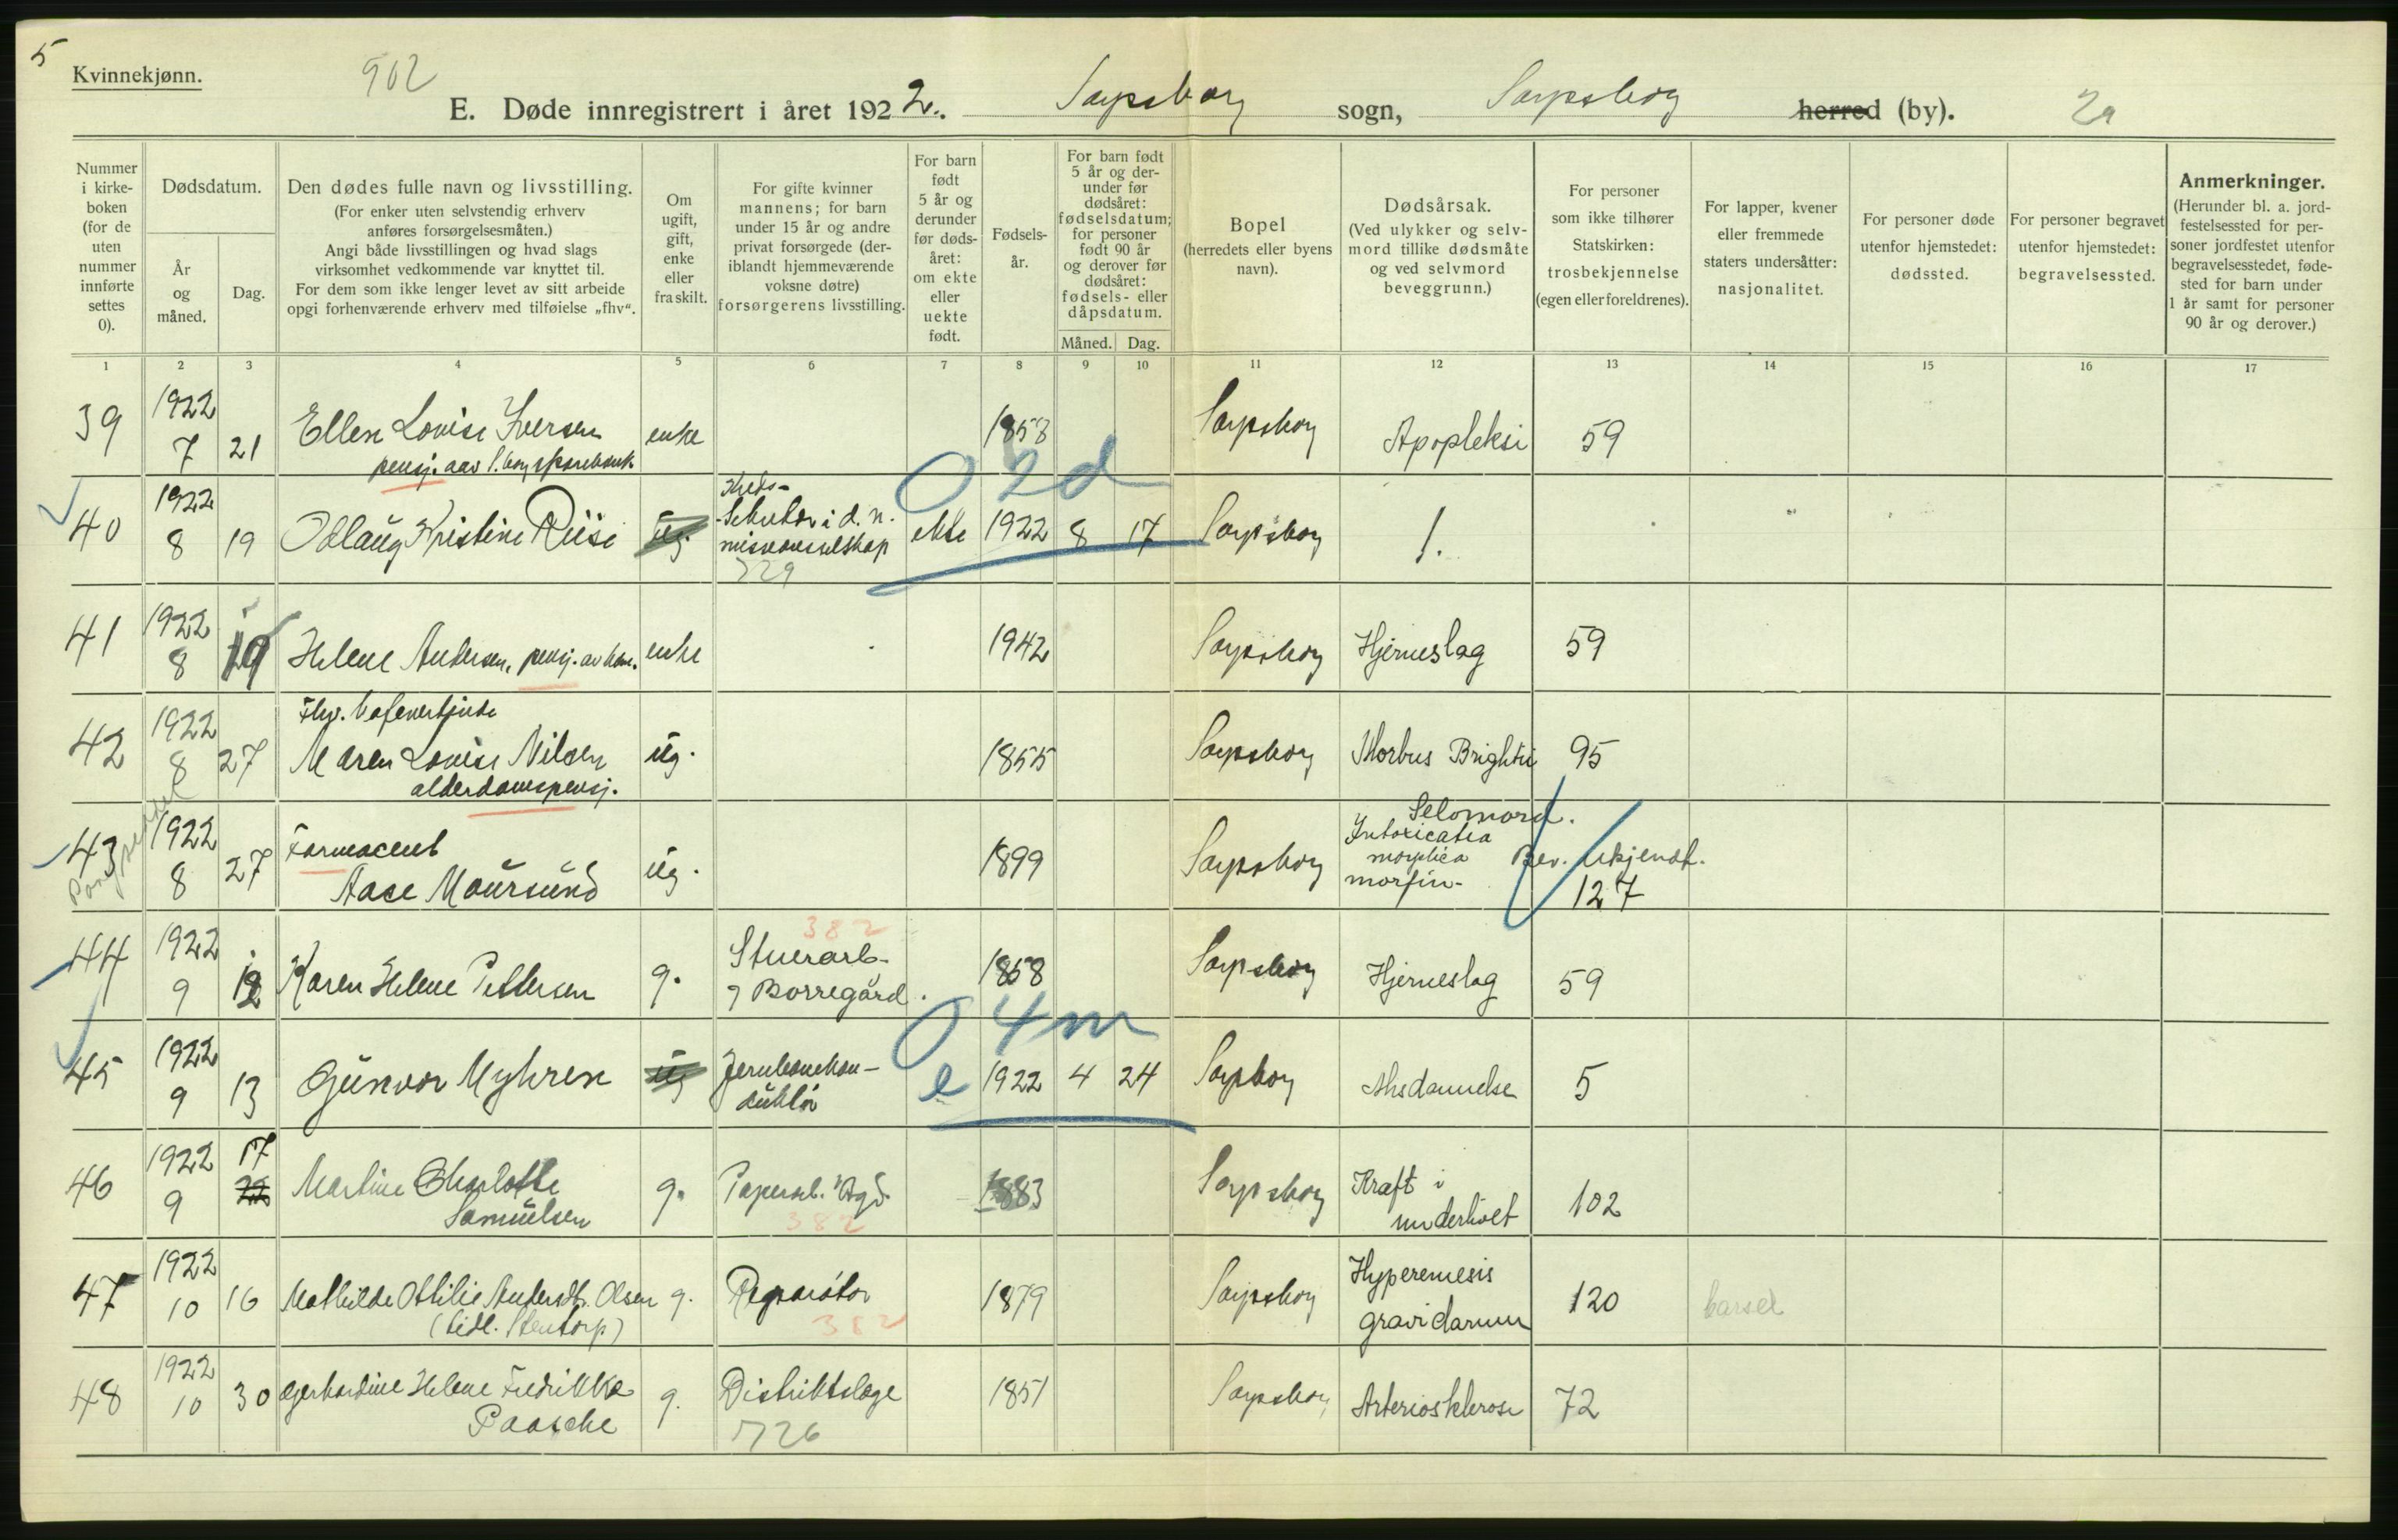 5
Kvinnekjønn.
902
E. Døde innregistrert i året 1922. Sarpsborg sogn, Sarpsborg herred (by). 2a
Nummer i kirkeboken (for de uten nummer innførte settes 0).
Dødsdatum.
År og måned.
Dag.
Den dødes fulle navn og livsstilling.
(For enker uten selvstendig erhverv anføres forsørgelsesmåten.)
Angi både livsstillingen og hvad slags virksomhet vedkommende var knyttet til.
For dem som ikke lenger levet av sitt arbeide opgi forhenværende erhverv med tilføielse „fhv“.
Om ugift, gift, enke eller fraskilt.
For gifte kvinner mannens; for barn under 15 år og andre privat forsørgede (deriblandt hjemmeværende voksne døtre) forsørgerens livsstilling.
For barn født 5 år og derunder før dødsåret: om ekte eller uekte født.
Fødselsår.
For barn født 5 år og derunder før dødsåret: fødselsdatum; for personer født 90 år og derover før dødsåret: fødsels- eller dåpsdatum.
Måned. Dag.
Bopel
(herredets eller byens navn).
Dødsårsak.
(Ved ulykker og selvmord tillike dødsmåte og ved selvmord beveggrunn.)
For personer som ikke tilhører Statskirken: trosbekjennelse (egen eller foreldrenes).
For lapper, kvener eller fremmede staters undersåtter: nasjonalitet.
For personer døde utenfor hjemstedet: dødssted.
For personer begravet utenfor hjemstedet: begravelsessted.
Anmerkninger.
(Herunder bl. a. jordfestelsessted for personer jordfestet utenfor begravelsesstedet, fødested for barn under 1 år samt for personer 90 år og derover.)
1 2 3 4 5 6 7 8 9 10 11 12 13 14 15 16 17
39 1922 7 21 Ellen Lovise Iversen enke 1858 Sarpsborg Apopleksi 59
pensj. aav S.borg sparebank
02d
40 1922 8 19 Odlaug Kristine Riise ug. Kreds-
Sekretær i d. n.
misjonsselskap ekte 1922 8 17 Sarpsborg 1.
729
41 1922 8 19 Helene Andersen, pensj. av kom. enke 1942 Sarpsborg Hjerneslag 59
42 1922 8 27 Fhv. Vafeuertjuste
Maren Lovise Nilsen ug. 1855 Sarpsborg Morbus Brightii 95
alderdomspensj.
43 1922 8 27 Farmaceut
Aase Maursund ug. 1899 Sarpsborg Selvmord.
Intoxicatia
morphica Bev. ukjendt.
morfin- 127
44 1922 9 12 Karen Helene Pettersen g. 382
Stuerarb.
Borregård. 1858 Sarpsborg Hjerneslag 59
04m
45 1922 9 13 Gunvor Myhren ug Jernbanekon-
duktør e 1922 4 24 Sarpborg Misdannelse 5
46 1922 9 17 Martine Charlotte
Samuelsen g. Papirarb. Bgd. 1883 Sarpsborg Kræft i
underlivet 102
382
47 1922 10 16 Mathilde Othilie Andersdtr. Olsen g. Reparatør 1879 Sarpsborg Hyperemesis
gravidarum 120 barsel
(tidl. Stentorp) 382
48 1922 10 30 Gerhardine Helene Fredrikke
Paasche g. Distriktslæge 1851 Sarpsborg Arteriosklerose 72
726